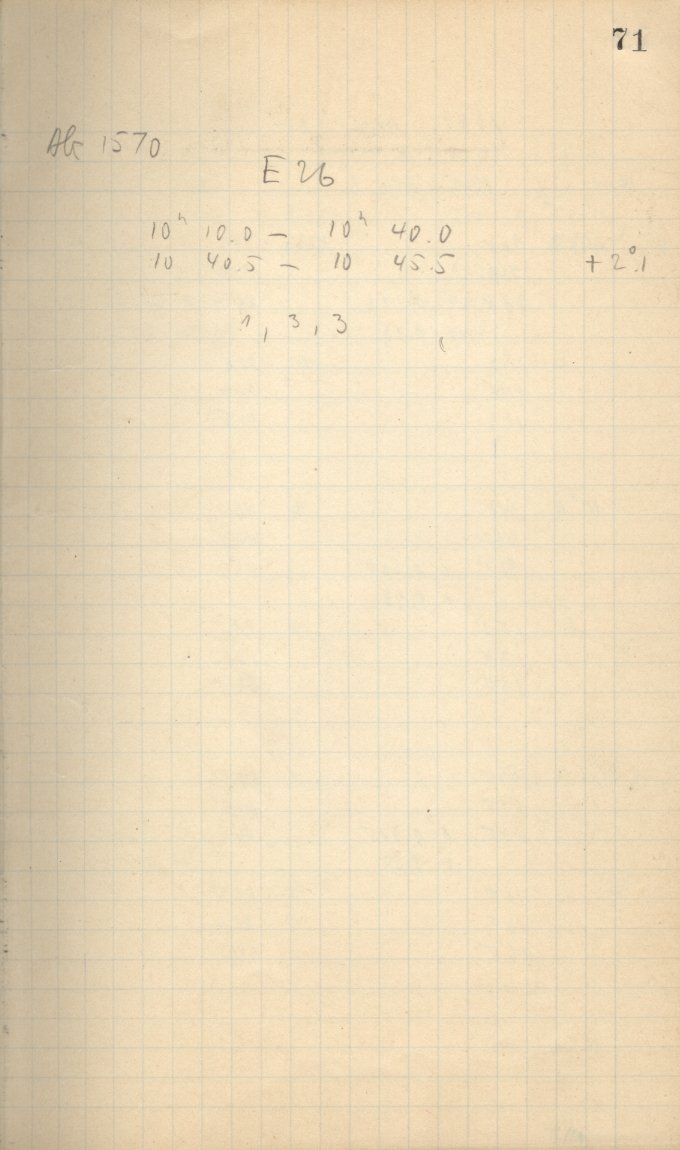 71
1570
E 26
10ʰ 10.0 — 10ʰ 40.0
10 40.5 — 10 45.5 + 2°.1
1, 3, 3